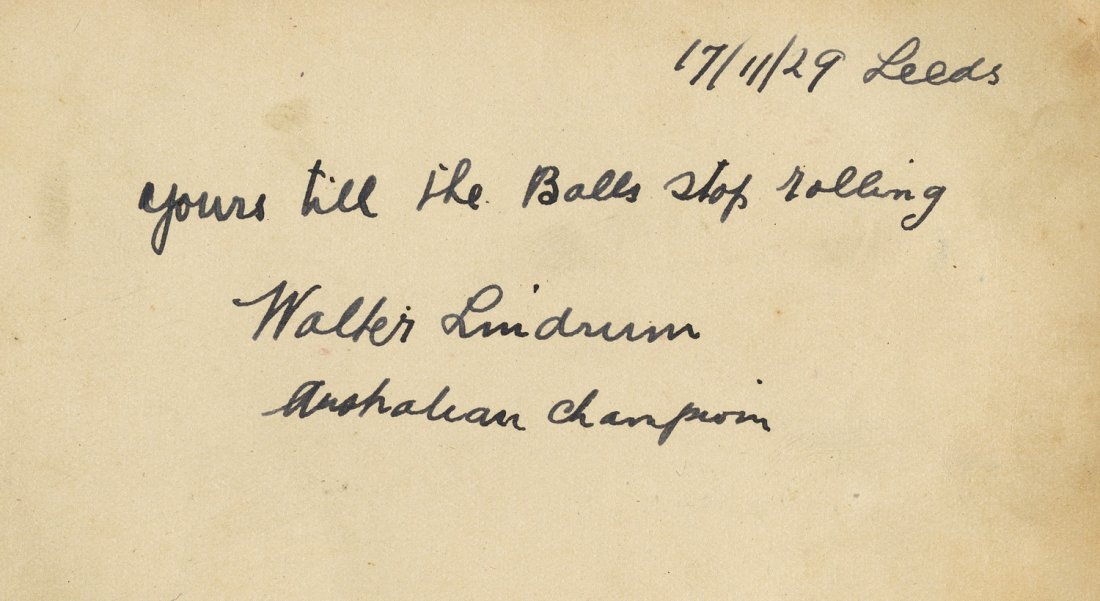 17/11/29 Leeds
yours till the Balls stop rolling
Walter Lindrum
Australian champion